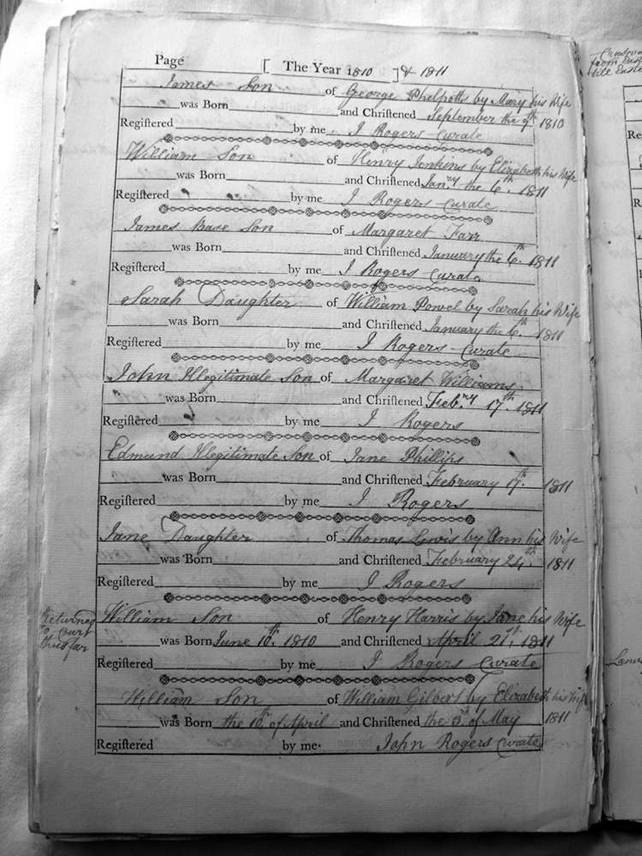 Page [ The Year 1810 ] & 1811
James Son of George Phelpotts by Mary his Wife
was Born and Chriſtened September the 9th 1810
Regiſtered by me J Rogers Curate
William Son of Henry Jenkins by Elizabeth his Wife
was Born and Chriſtened Janry the 6th 1811
Regiſtered by me J Rogers Curate
James Base Son of Margaret Farr
was Born and Chriſtened January the 6th 1811
Regiſtered by me J Rogers Curate
Sarah Daughter of William Powel by Sarah his Wife
was Born and Chriſtened January the 6th 1811
Regiſtered by me J Rogers Curate
John Illegitimate Son of Margaret Williams
was Born and Chriſtened Febry 17th 1811
Regiſtered by me J Rogers
Edmund Illegitimate Son of Jane Phillips
was Born and Chriſtened February 17th 1811
Regiſtered by me J Rogers
Jane Daughter of Thomas Lewis by Ann his Wife
was Born and Chriſtened February 24th 1811
Regiſtered by me J Rogers
Returned
to Court
thus far
William Son of Henry Harris by Jane his Wife
was Born June 10th 1810 and Chriſtened April 21st 1811
Regiſtered by me J Rogers Curate
William Son of William Gilbert by Elizabeth his Wife
was Born the 10th of April and Chriſtened the 5th of May 1811
Regiſtered by me John Rogers Curate